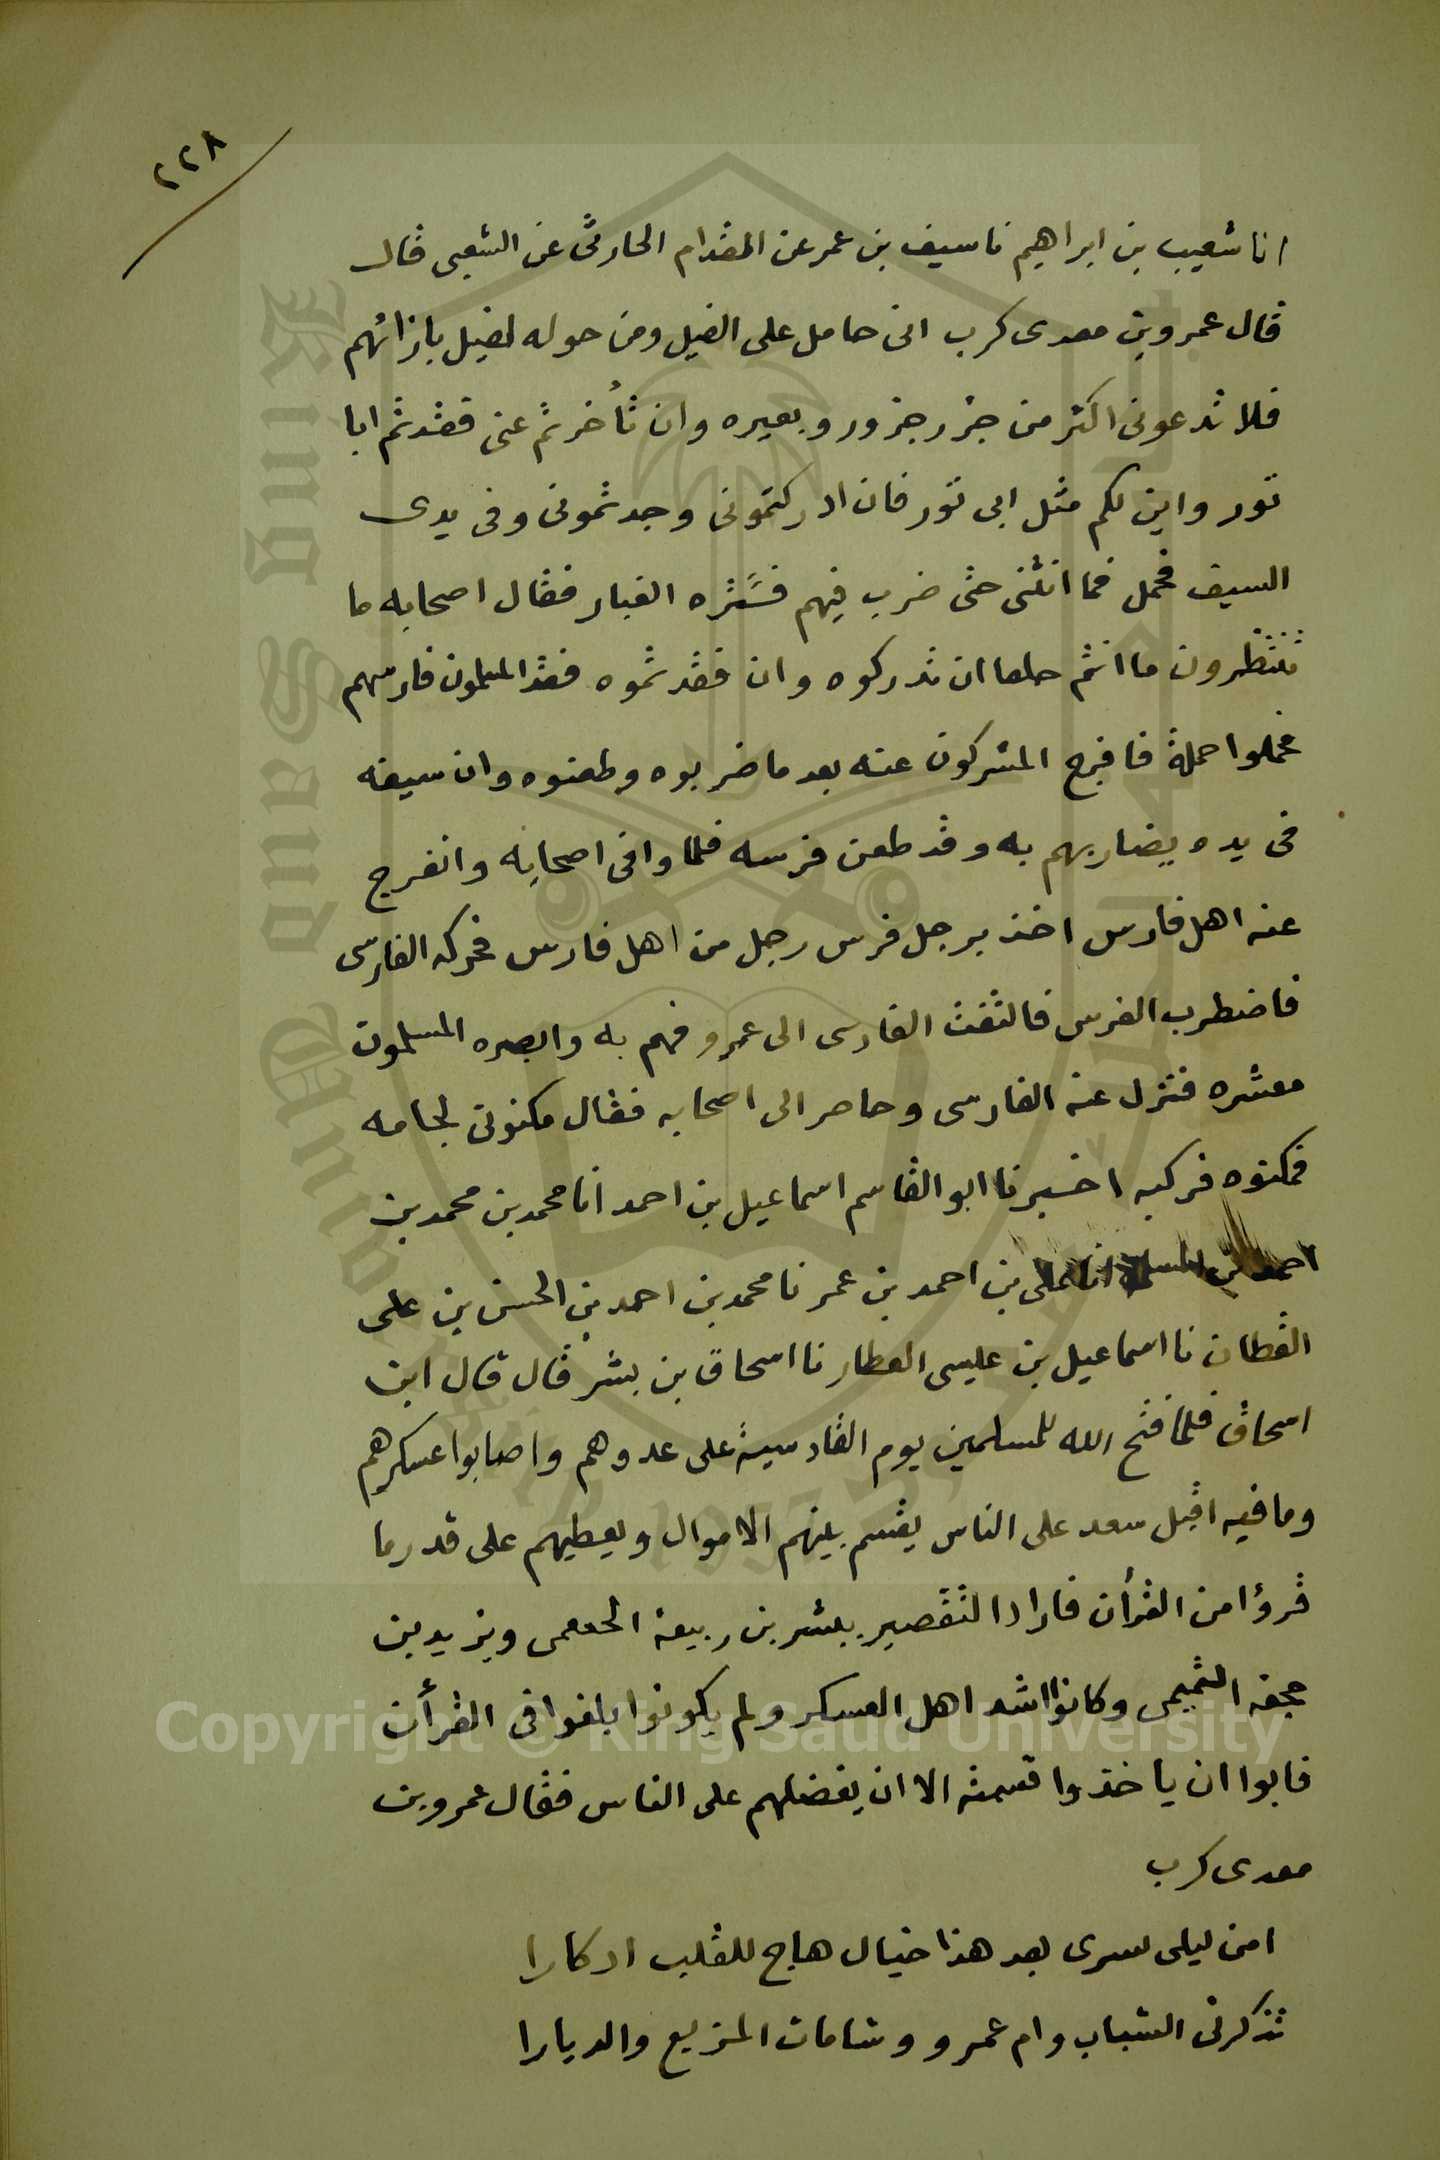 ٢٢٨
انا شعيب بن ابراهيم نا سيف بن عمر عن المقدام الحارثى عن الشعبى قال
قال عمرو بن معدى كرب انى حامل على الفيل ومن حوله لفيل بازائهم
فلا تدعونى اكثر من جزر جزور وبعيره وان تأخرتم عنى فقدتم ابا
ثور واين لكم مثل ابى ثور فان ادركتمونى وجدتمونى وفى يدى
السيف فحمل فما انثنى حتى ضرب فيهم فستره الغبار فقال اصحابه ما
تنتظرون ما انتم حلعا ان تدركوه وان فقدتموه فقد المسلمون فارسهم
فحملوا حملة فافرج المشركون عنه بعد ما ضربوه وطعنوه وان سيفه
فى يده يضاربهم به وقد طعن فرسه فلما وافى اصحابه وانفرج
عنه اهل فارس اخذ برجل فرس رجل من اهل فارس فحركه الفارسى
فاضطرب الفرس فالتفت الفارسى الى عمرو فهم به وابصره المسلمون
معشره فنزل عنه الفارسى وحاصر الى اصحابه فقال مكنونى لجامه
فمكنوه فركبه اخبرنا ابو القاسم اسماعيل بن احمد انا محمد بن محمد بن
احمد بن المسلمة انا على بن احمد بن عمر نا محمد بن احمد بن الحسن بن على
القطان نا اسماعيل بن عيسى العطار نا اسحاق بن بشر قال قال ابن
اسحاق فلما فتح الله للمسلمين يوم القادسية على عدوهم واصابوا عسكرهم
وما فيه اقبل سعد على الناس يقسم بينهم الاموال ويعطيهم على قدر ما
قرؤا من القرأن فاراد التقصير ببشر بن ربيعة الخثعمى ويزيد بن
عجفه التميمى وكانوا اشد اهل العسكر ولم يكونوا بلغوا فى القرأن
فابوا ان ياخذوا قسمته الا ان يفضلهم على الناس فقال عمرو بن
معدى كرب
امن ليلى سرى بعد هذا خيال هاج للقلب ادكارا
تذكرنى الشباب وام عمرو وشامات المزيع والديارا
King Saud University
1957
Copyright © King Saud University